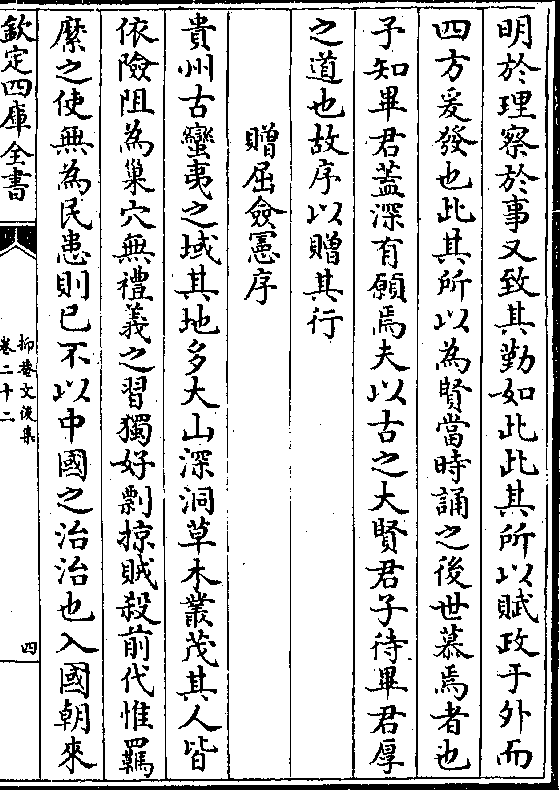 明於理察於事又致其勤如此此其所以賦政于外而
四方爰發也此其所以為賢當時誦之後世慕焉者也
予知畢君葢深有願焉夫以古之大賢君子待畢君厚
之道也故序以贈其行
贈屈僉憲序
貴州古蠻夷之域其地多大山深洞草木叢茂其人皆
依險阻為巢穴無禮義之習獨好剽掠賊殺前代惟羈
縻之使無為民患則已不以中國之治治也入國朝來
欽定四庫全書
抑菴文後集
卷二十二
四